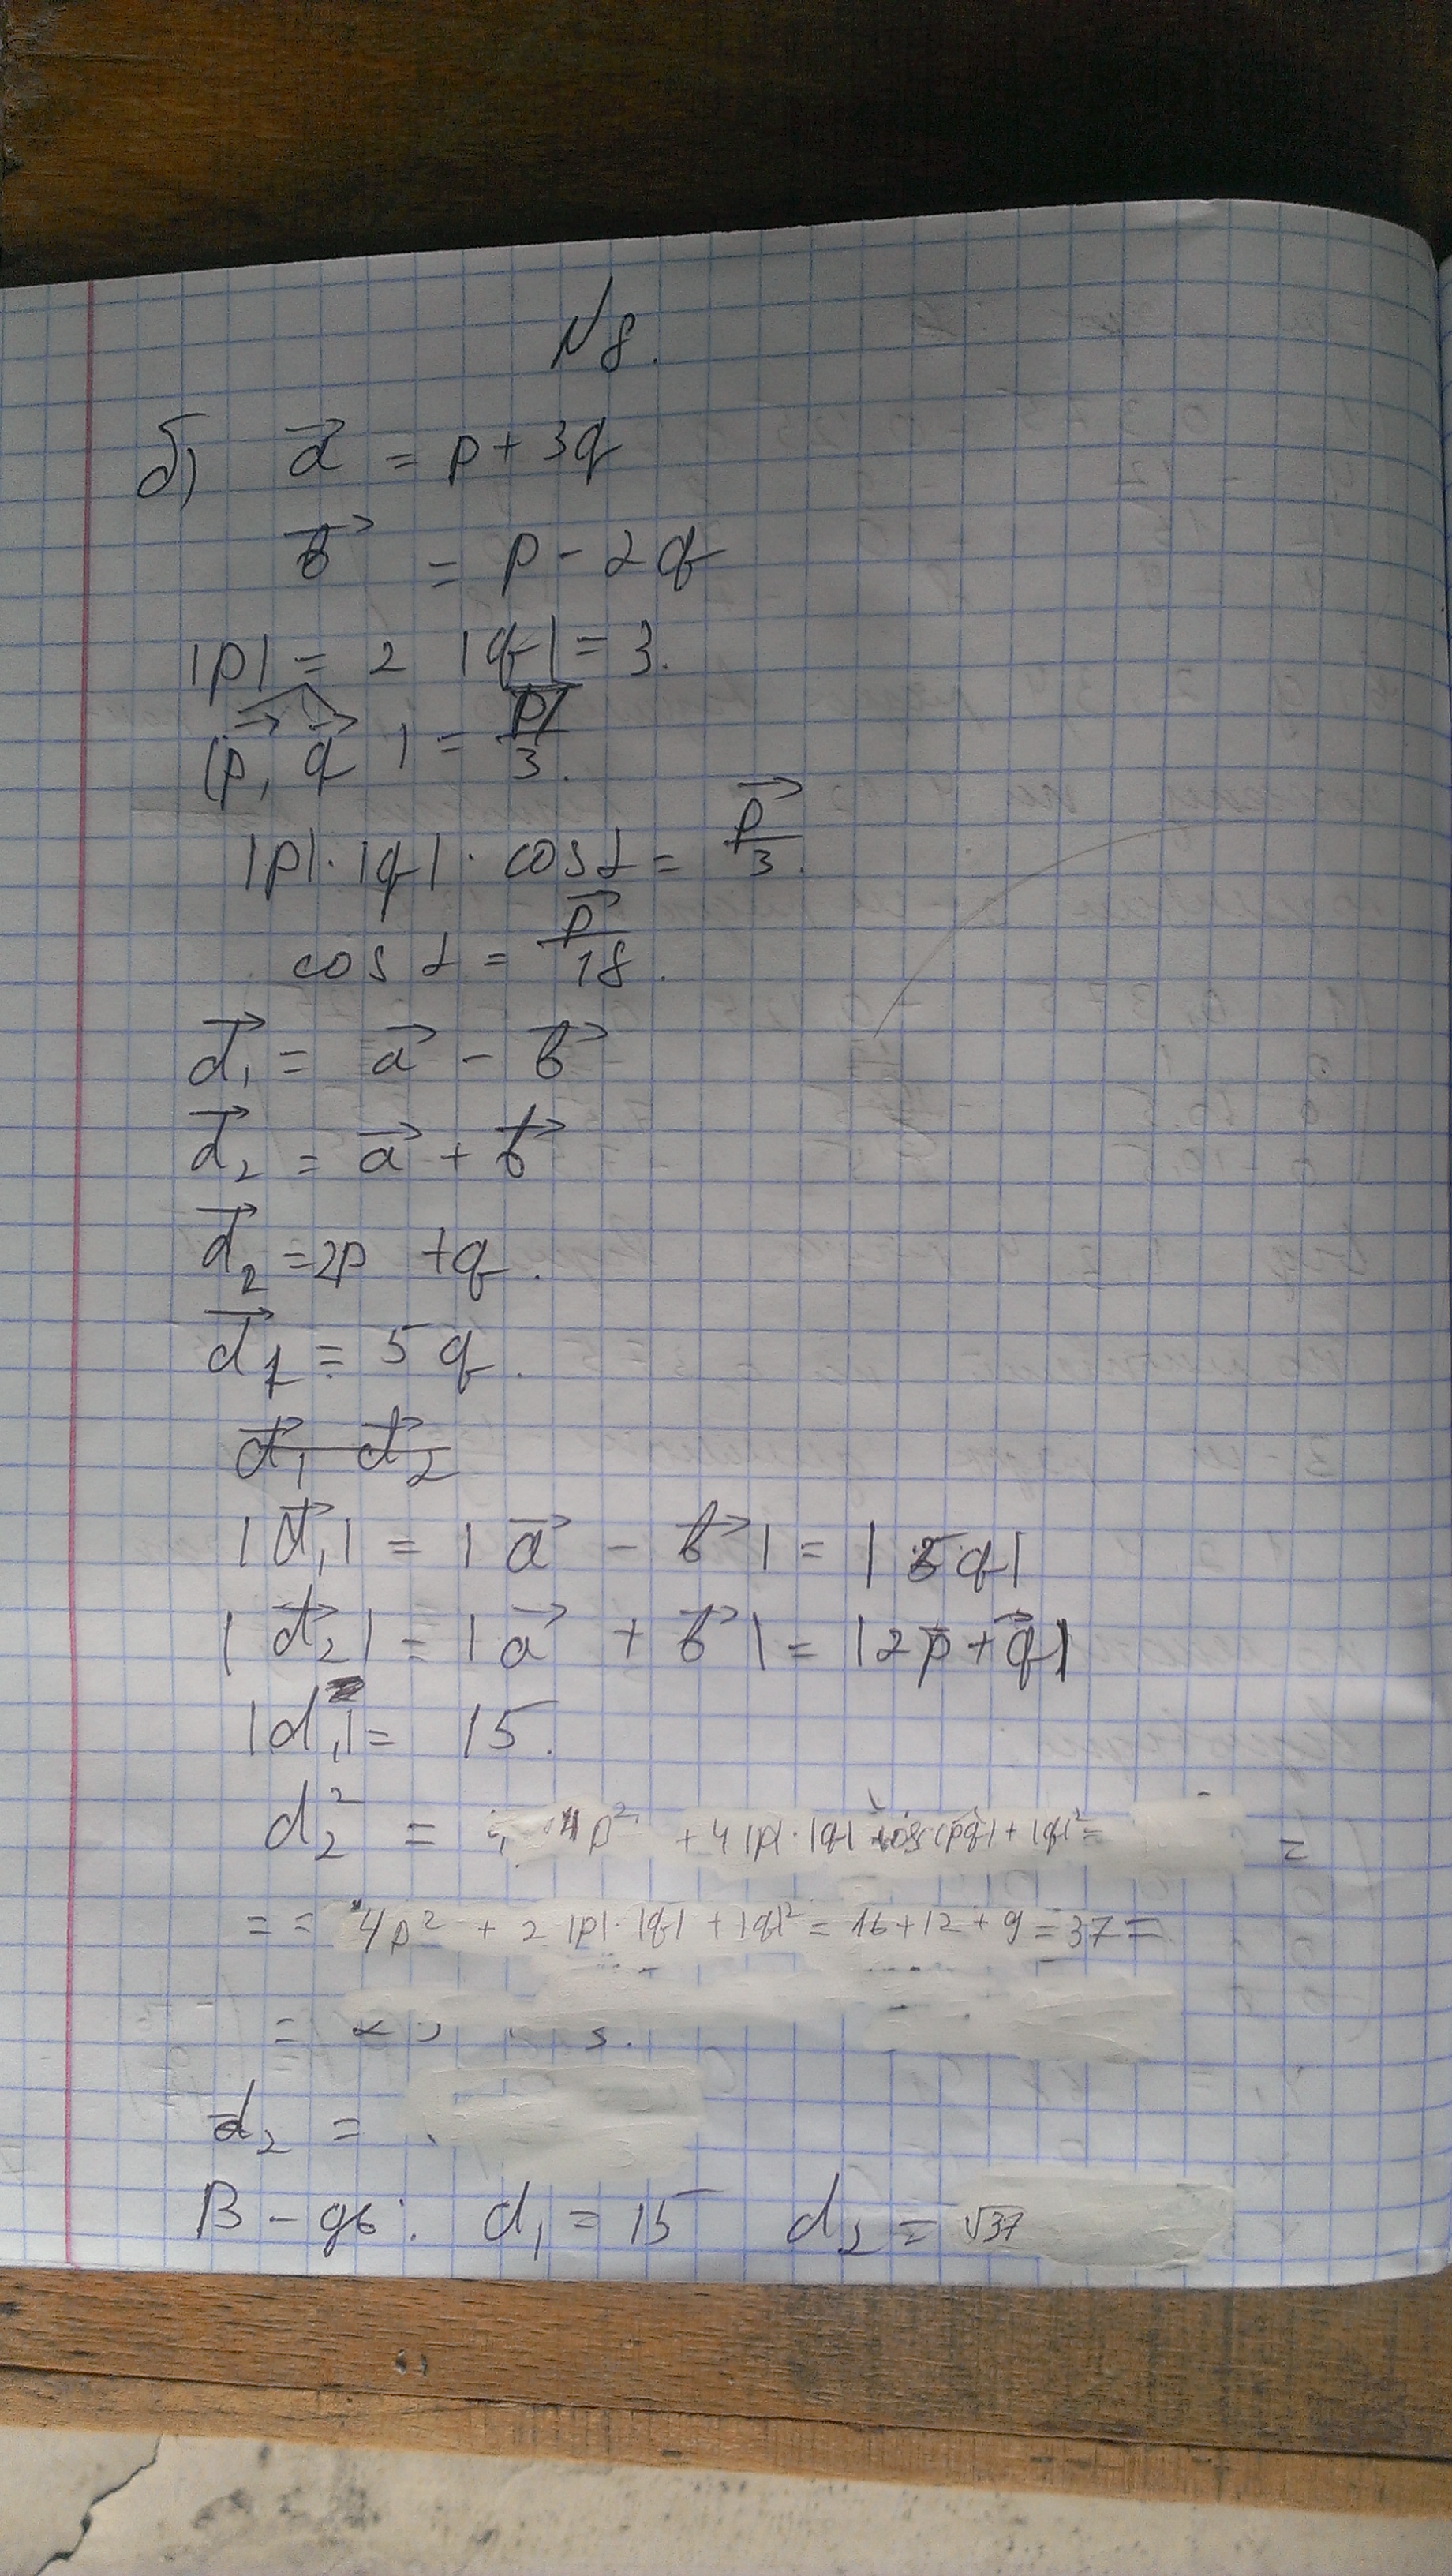 N 8.
б) a⃗ = p + 3q
b⃗ = p - 2q
|p| = 2 |q| = 3.
(p⃗, q⃗) = p/3.
|p|·|q|·cos α = p⃗/3.
cos α = p⃗/18.
d⃗₁ = a⃗ - b⃗
d⃗₂ = a⃗ + b⃗
d⃗₂ = 2p + q.
d⃗₁ = 5q.
d⃗₁ d⃗₂
|d⃗₁| = |a⃗ - b⃗| = |5q|
|d⃗₂| = |a⃗ + b⃗| = |2p + q⃗|
|d₁| = 15.
d₂² = 4p² + 4|p|·|q| cos(pq) + |q|² = =
= = 4p² + 2|p|·|q| + |q|² = 16 + 12 + 9 = 37 =
=
d₂ =
В-дь: d₁ = 15 d₂ = √37